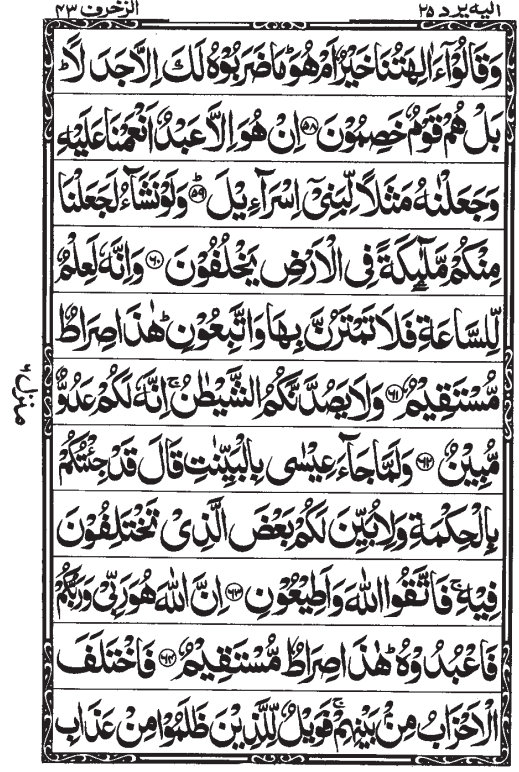 الیه یرد ۲۵
الزخرف ۴۳
وَقَالُوْۤا ءَاٰلِهَتُنَا خَیْرٌ اَمْ هُوَ ؕ مَا ضَرَبُوْهُ لَكَ اِلَّا جَدَلًا ؕ
بَلْ هُمْ قَوْمٌ خَصِمُوْنَ ۝۵۸ اِنْ هُوَ اِلَّا عَبْدٌ اَنْعَمْنَا عَلَیْهِ
وَجَعَلْنٰهُ مَثَلًا لِّبَنِیْۤ اِسْرَآءِیْلَ ؕ۝۵۹ وَلَوْ نَشَآءُ لَجَعَلْنَا
مِنْكُمْ مَّلٰٓىِٕكَةً فِی الْاَرْضِ یَخْلُفُوْنَ ۝۶۰ وَاِنَّهٗ لَعِلْمٌ
لِّلسَّاعَةِ فَلَا تَمْتَرُنَّ بِهَا وَاتَّبِعُوْنِ ؕ هٰذَا صِرَاطٌ
مُّسْتَقِیْمٌ ۝۶۱ وَلَا یَصُدَّنَّكُمُ الشَّیْطٰنُ ۚ اِنَّهٗ لَكُمْ عَدُوٌّ
مُّبِیْنٌ ۝۶۲ وَلَمَّا جَآءَ عِیْسٰی بِالْبَیِّنٰتِ قَالَ قَدْ جِئْتُكُمْ
بِالْحِكْمَةِ وَلِاُبَیِّنَ لَكُمْ بَعْضَ الَّذِیْ تَخْتَلِفُوْنَ
فِیْهِ ۚ فَاتَّقُوا اللّٰهَ وَاَطِیْعُوْنِ ۝۶۳ اِنَّ اللّٰهَ هُوَ رَبِّیْ وَرَبُّكُمْ
فَاعْبُدُوْهُ ؕ هٰذَا صِرَاطٌ مُّسْتَقِیْمٌ ۝۶۴ فَاخْتَلَفَ
الْاَحْزَابُ مِنْۢ بَیْنِهِمْ ۚ فَوَیْلٌ لِّلَّذِیْنَ ظَلَمُوْا مِنْ عَذَابِ
منزل ۶